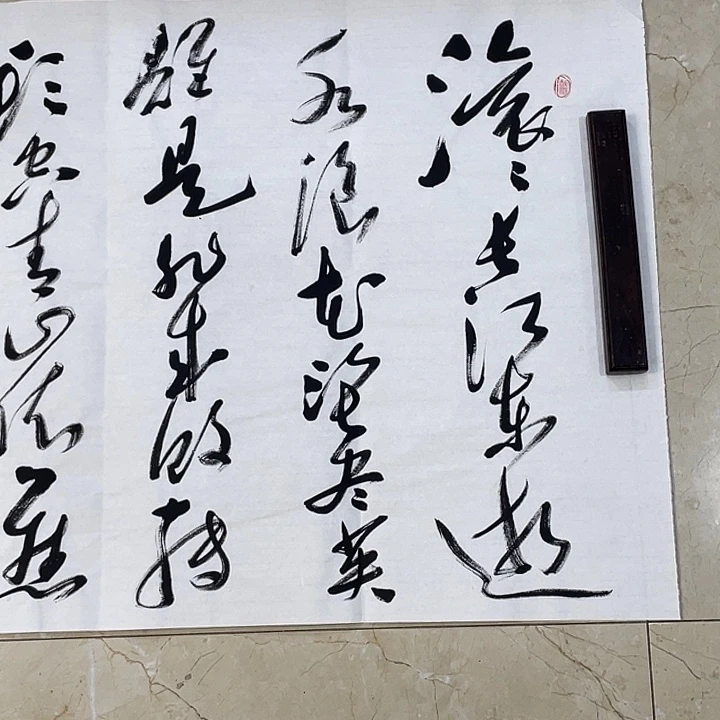 滚滚长江东逝
水浪花淘尽英
雄是非成败转
头空青山依旧